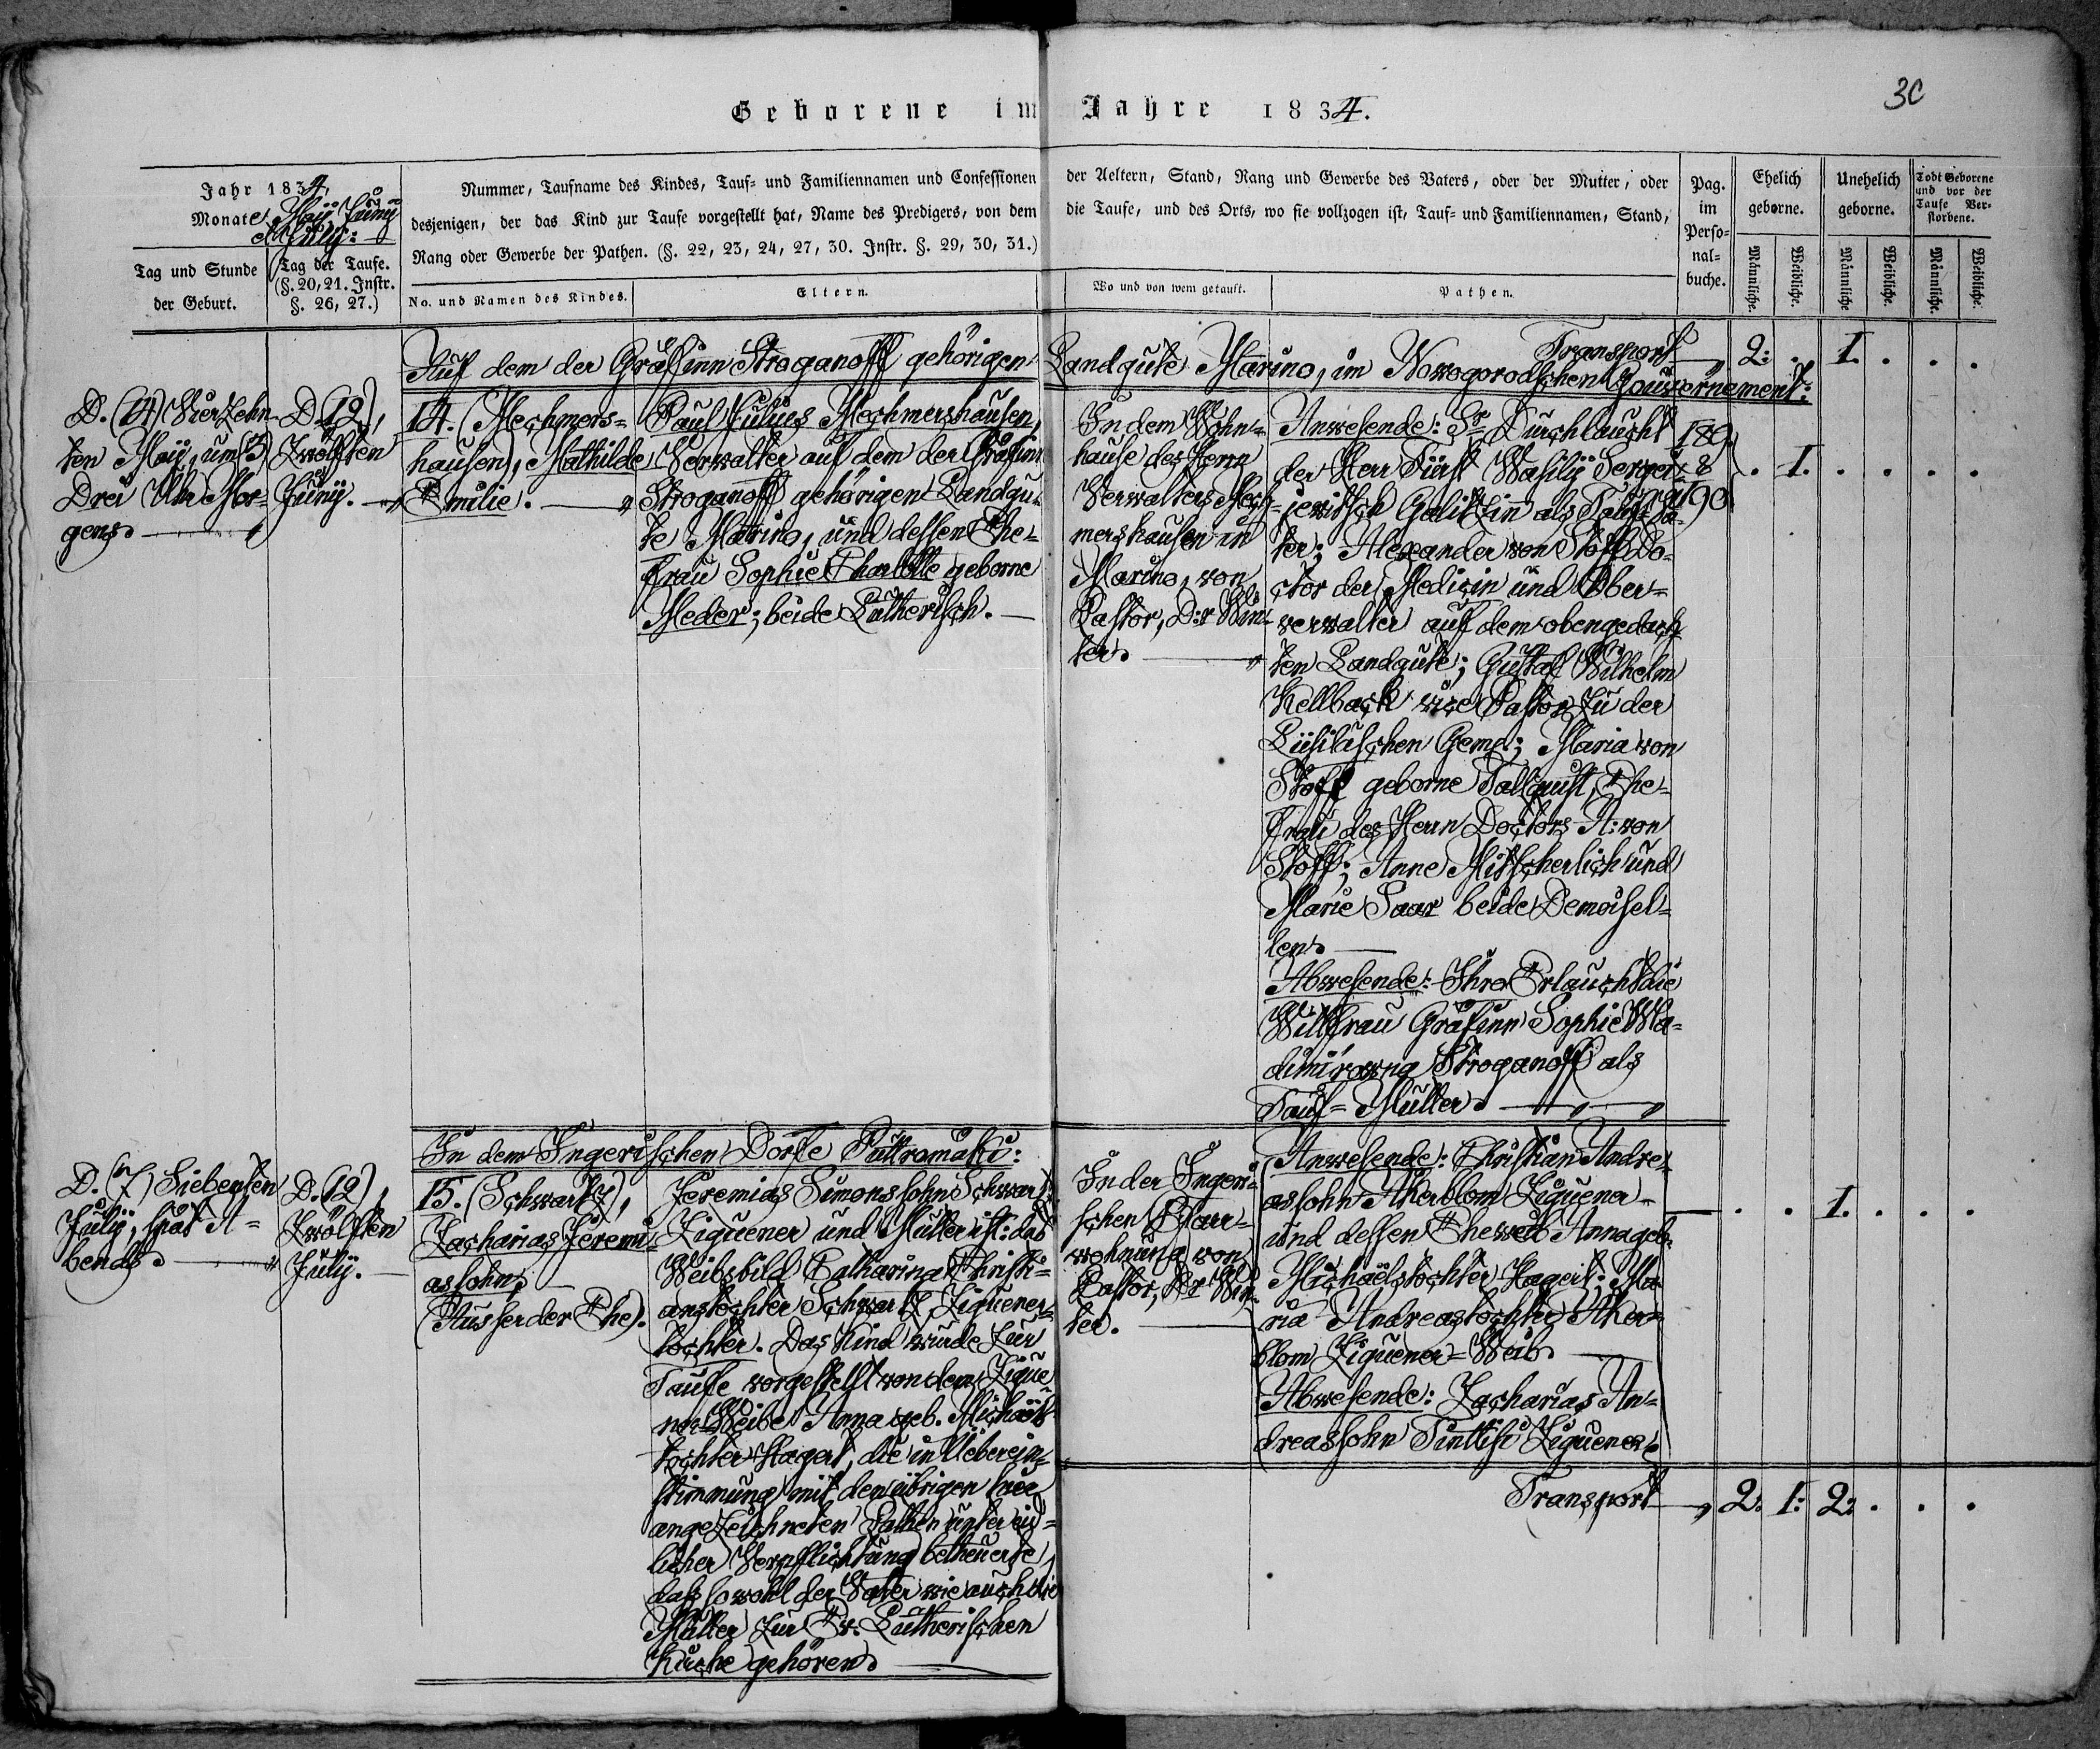 30
Geborene im Jahre 1834.
Jahr 1834,
Monate Maij, Junij
& Julij:
Tag und Stunde
der Geburt.
Tag der Taufe.
(§. 20, 21. Instr.
§. 26, 27.)
Nummer, Taufname des Kindes, Tauf- und Familiennamen und Confessionen der Aeltern, Stand, Rang und Gewerbe des Vaters, oder der Mutter, oder
desjenigen, der das Kind zur Taufe vorgestellt hat, Name des Predigers, von dem die Taufe, und des Orts, wo sie vollzogen ist, Tauf- und Familiennamen, Stand,
Rang oder Gewerbe der Pathen. (§. 22, 23, 24, 27, 30. Instr. §. 29, 30, 31.)
No. und Namen des Kindes.
Eltern.
Wo und von wem getauft.
Pathen.
Pag.
im
Perso-
nal-
buche.
Ehelich
geborne.
Unehelich
geborne.
Todt Geborene
und vor der
Taufe Ver-
storbene.
Männliche.
Weibliche.
Männliche
Weibliche.
Männliche.
Weibliche.
Transport 2: . 1. . . .
Auf dem der Gräfinn Stroganoff gehörigen Landgute Marino, im Nowogorodschen Gouvernement:
D. (14) Vierzehn-
ten Maij, um (3)
Drei Uhr Mor-
gens.
D. (12),
Zwölften
Junij.
14. (Mechmers-
hausen), Mathilde
Emilie.
Paul Julius Mechmershausen,
Verwalter auf dem der Gräfinn
Stroganoff gehörigen Landgu-
te Marino, und dessen Ehe-
frau Sophie Charlotte geborne
Meder; beide Lutherisch.
In dem Wohn-
hause des Herrn
Verwalters Mech-
mershausen in
Marino, von
Pastor, D:r Win-
ter.
Anwesende: Se Durchlaucht
der Herr Fürst Wasilij Sergei-
jewitsch Galitzin als Tauf-Va-
ter; Alexander von Stoff Do-
ctor der Medicin und Ober-
verwalter auf dem obengedach-
ten Landgute; Gustaf Wilhelm
Hellback vice Pastor zu der
Gemd; Maria von
Stoff geborne Tallquist, Ehe-
frau des Herrn Doctors A: von
Stoff; Anne Mitscherlich und
Marie Saar beide Demoisel-
len.
Abwesende: Ihre Erlaucht die
Wittfrau Gräfinn Sophie Wla-
dimirowna Stroganoff als
Tauf-Mutter.
189
&
190
. 1. . . . .
In dem Ingerischen Dorfe Puttromäki:
D. (7) Siebenten
Julij, spät A-
bends.
D. (12),
Zwölften
Julij.
15. (Schwartz),
Zacharias Jeremi-
assohn,
(Ausser der Ehe).
Jeremias Simonssohn Schwartz
Ziguener und Mutter ist: das
Weibsbild Catharina Christi-
anstochter Schwartz, Ziguener-
tochter. Das Kind wurde zur
Taufe vorgestellt von dem Zigue-
ner-Weibe Anna geb. Michaëls-
tochter Hagert, die in Ueberein-
stimmung mit den übrigen hier
angezeichneten Pathen unter eid-
licher Verpflichtung betheuerte,
dass sowohl der Vater wie auch die
Mutter zur Ev. Lutherischen
Kirche gehören.
In der Ingeri-
schen Pfarr-
wohnung von
Pastor, Dr Win-
ter.
Anwesende: Christian Andre-
assohn Åkerblom Ziguener
und dessen Eheweib Anna geb.
Michaëlstochter Hagert; Ma-
ria Andreastochter Åker-
blom Ziguener-Weib.
Abwesende: Zacharias An-
dreassohn Ziguener.
. . 1. . . .
Transport 2. 1: 2: . . .